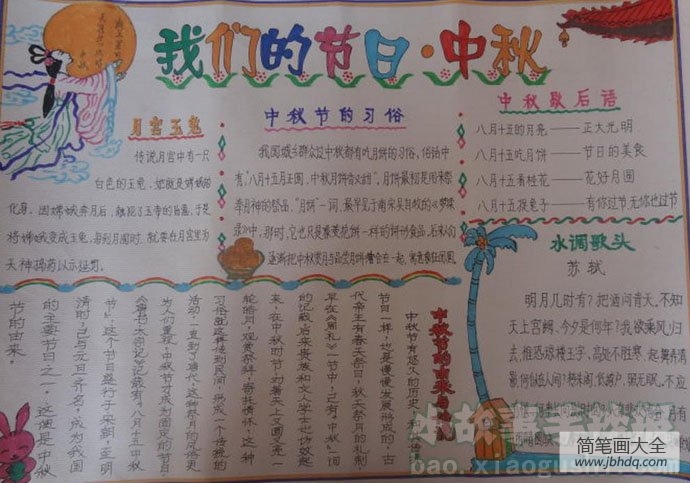 我们的节日·中秋
月宫玉兔
传说月宫中有一只
白色的玉兔，她就是嫦娥的
化身。因嫦娥奔月后，触犯了玉帝的旨意，于是
将嫦娥变成玉兔，每到月圆时，就要在月宫里为
天神捣药以示惩罚。
中秋节的习俗
我国城乡群众过中秋都有吃月饼的习俗，俗话中
有："八月十五月正圆，中秋月饼香又甜"。月饼最初是用来祭
奉月神的祭品，"月饼"一词，最早见于南宋吴自牧的《梦粱
录》中，那时，它也只是像菱花饼一样的饼形食品。后来人们
逐渐把中秋赏月与品尝月饼结合在一起，寓意家人团圆
中秋歇后语
八月十五的月亮——正大光明
八月十五吃月饼——节日的美食
八月十五看桂花——花好月圆
八月十五捉兔子——有你过节无你也过节
水调歌头
苏轼
明月几时有？把酒问青天。不知
天上宫阙，今夕是何年？我欲乘风归
去，惟恐琼楼玉宇，高处不胜寒。起舞弄清
影，何似在人间？转朱阁，低绮户，照无眠。不应
中秋节的由来
中秋节有悠久的历史，和
节日一样，也是慢慢发展形成的，古
代帝王有春天祭日，秋天祭月的礼制
早在《周礼》一书中，已有"中秋"一词
的记载。后来贵族和文人学士也仿效起
来，在中秋时节，对着天上又圆又亮一
轮皓月，观赏祭拜，寄托情怀，这种
习俗就这样传到民间，形成一个传统的
活动，一直到了唐代，这种祭月的风俗更
为人们重视，中秋节才成为固定的节日，
《唐书·太宗记》记载有"八月十五中秋
节"，这个节日盛行于宋朝，至明
清时，已与元旦齐名，成为我国
的主要节日之一。这便是中秋
节的由来。
小故事手抄报
bao.xiaogushi.com
简笔画大全
www.jbhdq.com